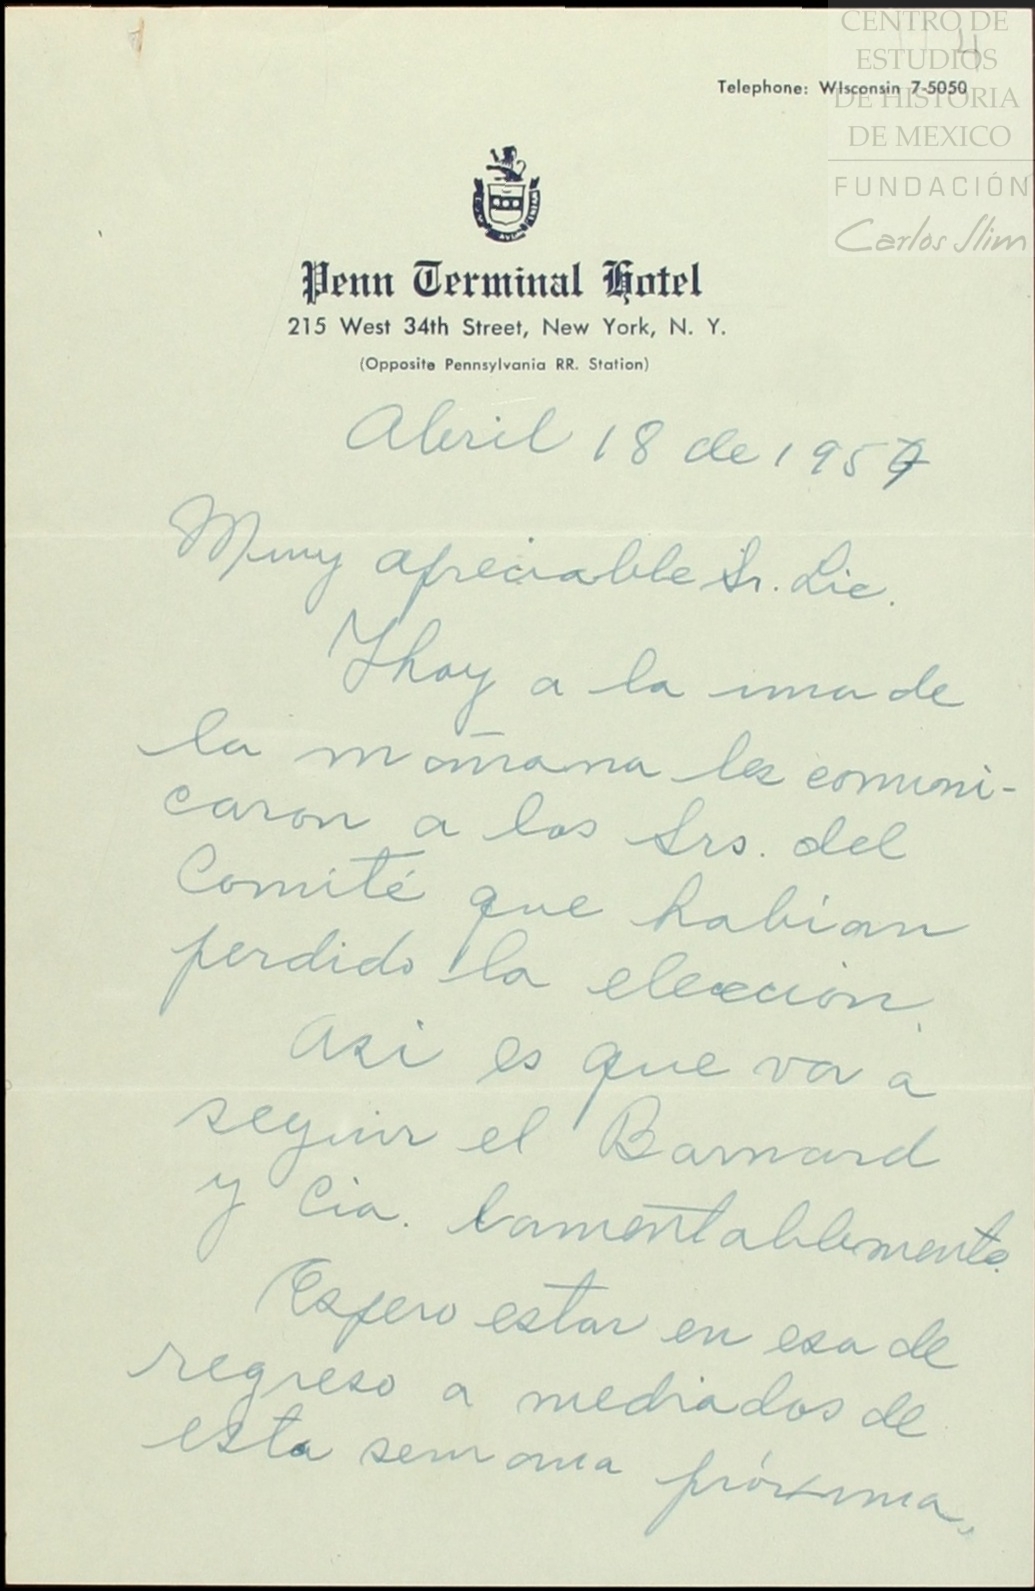 CENTRO DE
ESTUDIOS
DE HISTORIA
DE MEXICO
FUNDACIÓN
Carlos Slim
4
Telephone: WIsconsin 7-5050
Penn Terminal Hotel
215 West 34th Street, New York, N. Y.
(Opposite Pennsylvania RR. Station)
Abril 18 de 1957
Muy apreciable Sr. Lic.
Hoy a la una de
la mañana les comuni-
caron a los Srs. del
Comité que habían
perdido la elección.
Asi es que va a
seguir el Barnard
y Cia. lamentablemente.
Espero estar en esa de
regreso a mediados de
esta semana próxima.